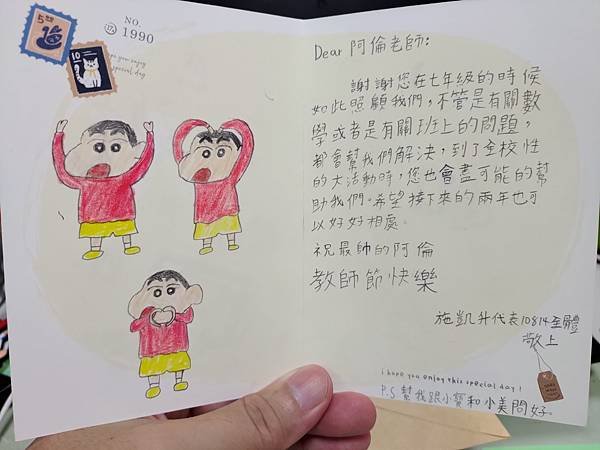 NO.
1990
5
10
Dear 阿倫老師:
謝謝您在七年級的時候
如此照顧我們，不管是有關數
學或者是有關班上的問題，
都會幫我們解決，到了全校性
的大活動時，您也會盡可能的幫
助我們。希望接下來的兩年也可
以好好相處。
祝最帥的阿倫
教師節快樂
施凱升代表10814全體
敬上
i hope you enjoy this special day!
P.S 幫我跟小寶和小美問好